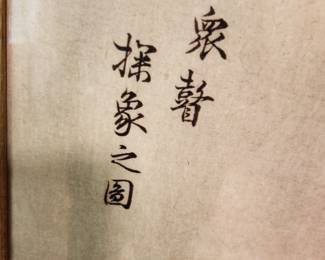 衆瞽
探象之圖